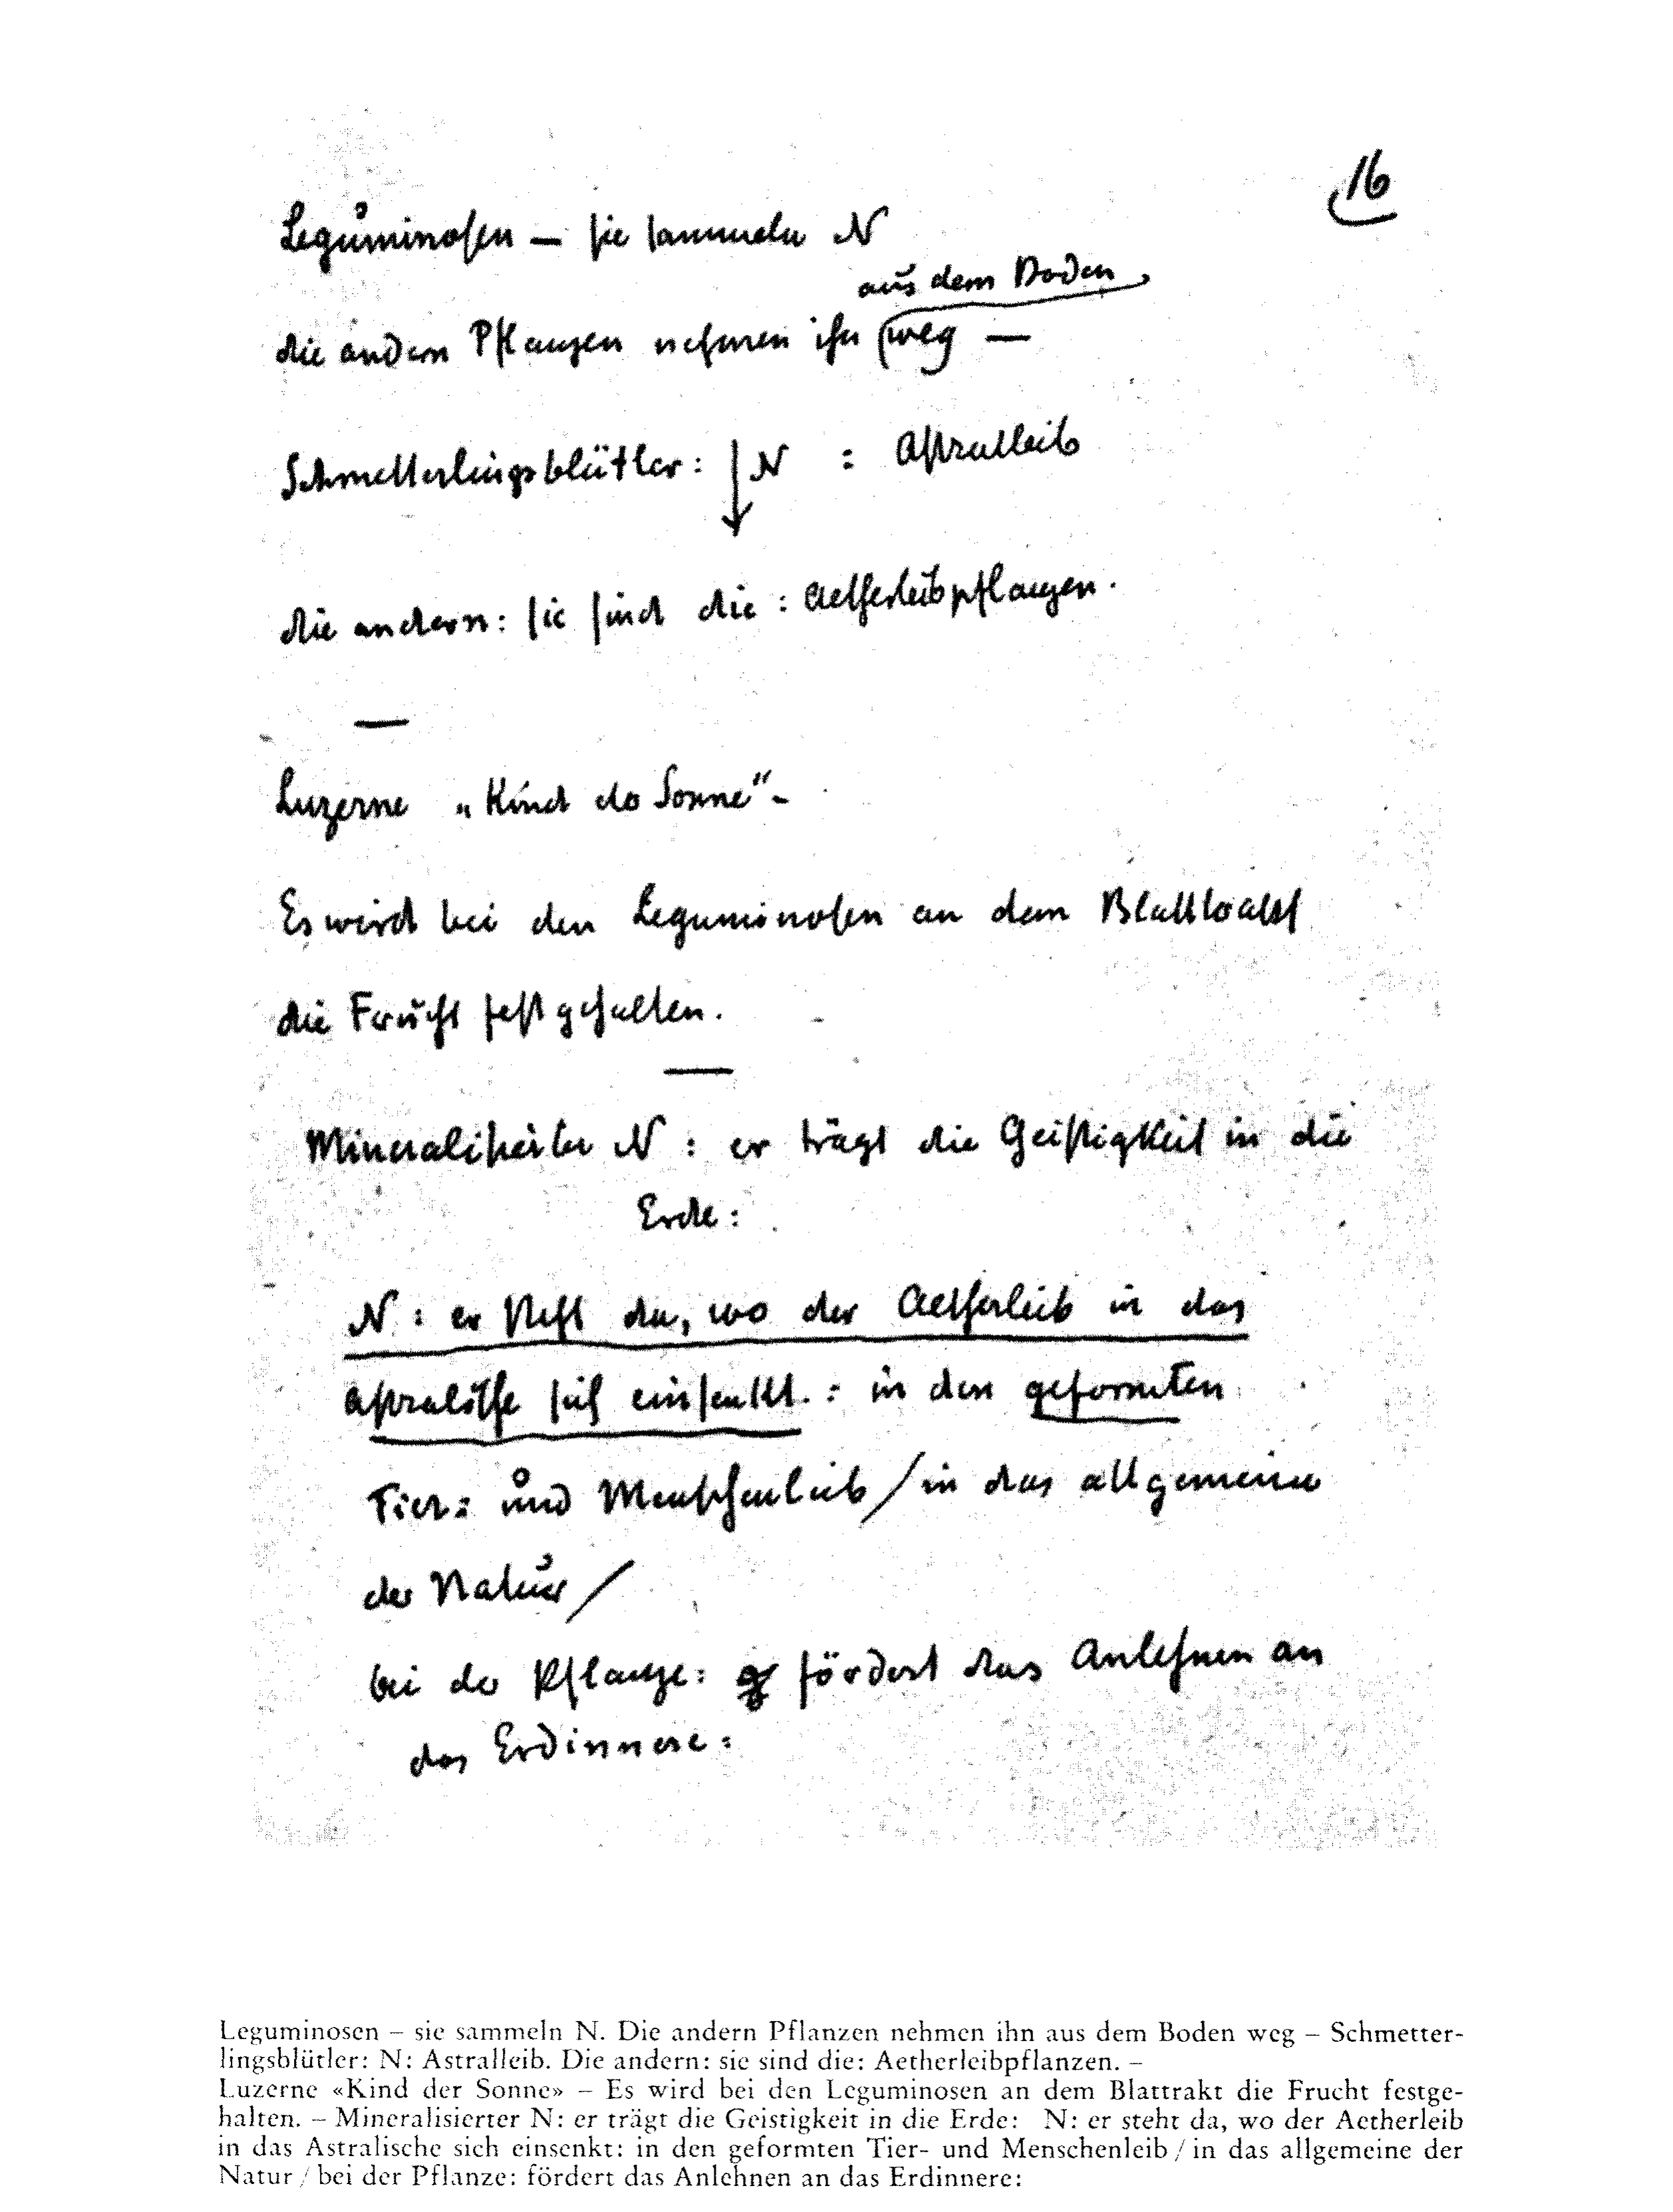 16
Leguminosen — sie sammeln N
aus dem Boden
die andern Pflanzen nehmen ihn weg —
Schmetterlingsblütler: N : Astralleib
die andern: sie sind die: Aetherleibpflanzen.
—
Luzerne „Kind der Sonne“ -
Es wird bei den Leguminosen an dem
die Frucht festgehalten.
—
Mineralisierter N : er trägt die Geistigkeit in die
Erde:
N : er steht da, wo der Aetherleib in das
Astralische sich einsenkt. : in den geformten
Tier= und Menschenleib / in das allgemeine
der Natur /
bei der Pflanze: fördert das Anlehnen an
das Erdinnere:
Leguminosen – sie sammeln N. Die andern Pflanzen nehmen ihn aus dem Boden weg – Schmetter-
lingsblütler: N: Astralleib. Die andern: sie sind die: Aetherleibpflanzen. –
Luzerne «Kind der Sonne» – Es wird bei den Leguminosen an dem Blattrakt die Frucht festge-
halten. – Mineralisierter N: er trägt die Geistigkeit in die Erde: N: er steht da, wo der Aetherleib
in das Astralische sich einsenkt: in den geformten Tier- und Menschenleib / in das allgemeine der
Natur / bei der Pflanze: fördert das Anlehnen an das Erdinnere: